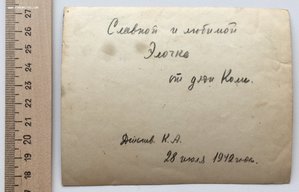 Славной и любимой
Элочке
от дяди Коли.
К.А.
28 июля 1942 год.